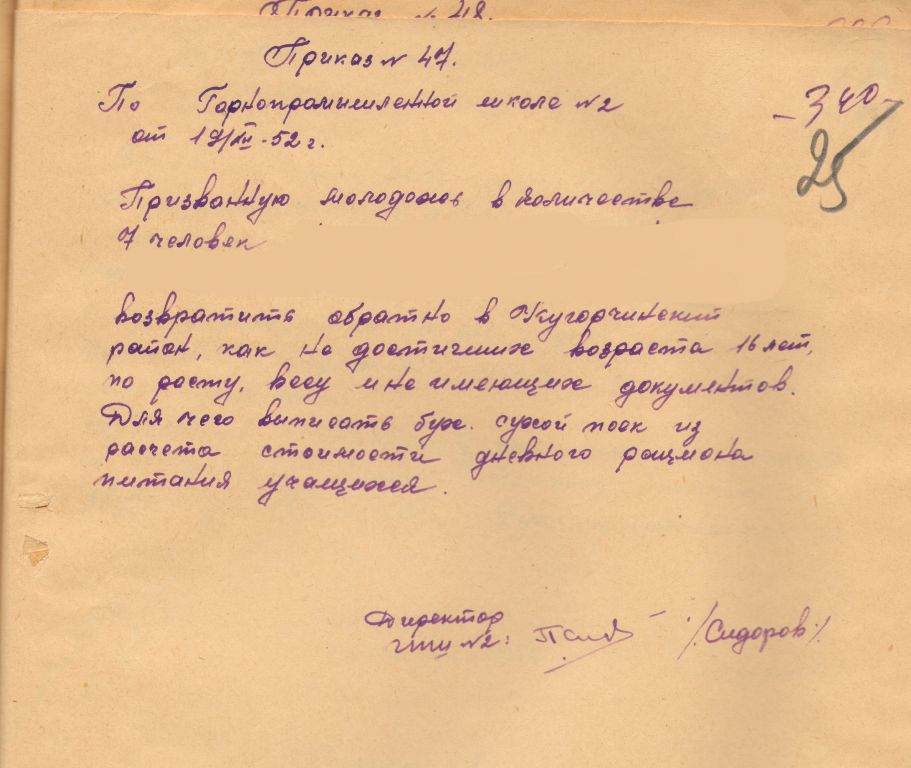 Приказ № 48.
Приказ № 47.
По Горнопромышленной школе № 2
от 19/III-52 г.
- 340 -
25
Призванную молодежь в количестве
7 человек
возвратить обратно в Кугарчинский
район, как не достигших возраста 16 лет,
по росту, весу и не имеющих документов.
Для чего выписать бух. сухой паек из
расчета стоимости дневного рациона
питания учащихся.
Директор
ГПШ № 2: /Сидоров/.